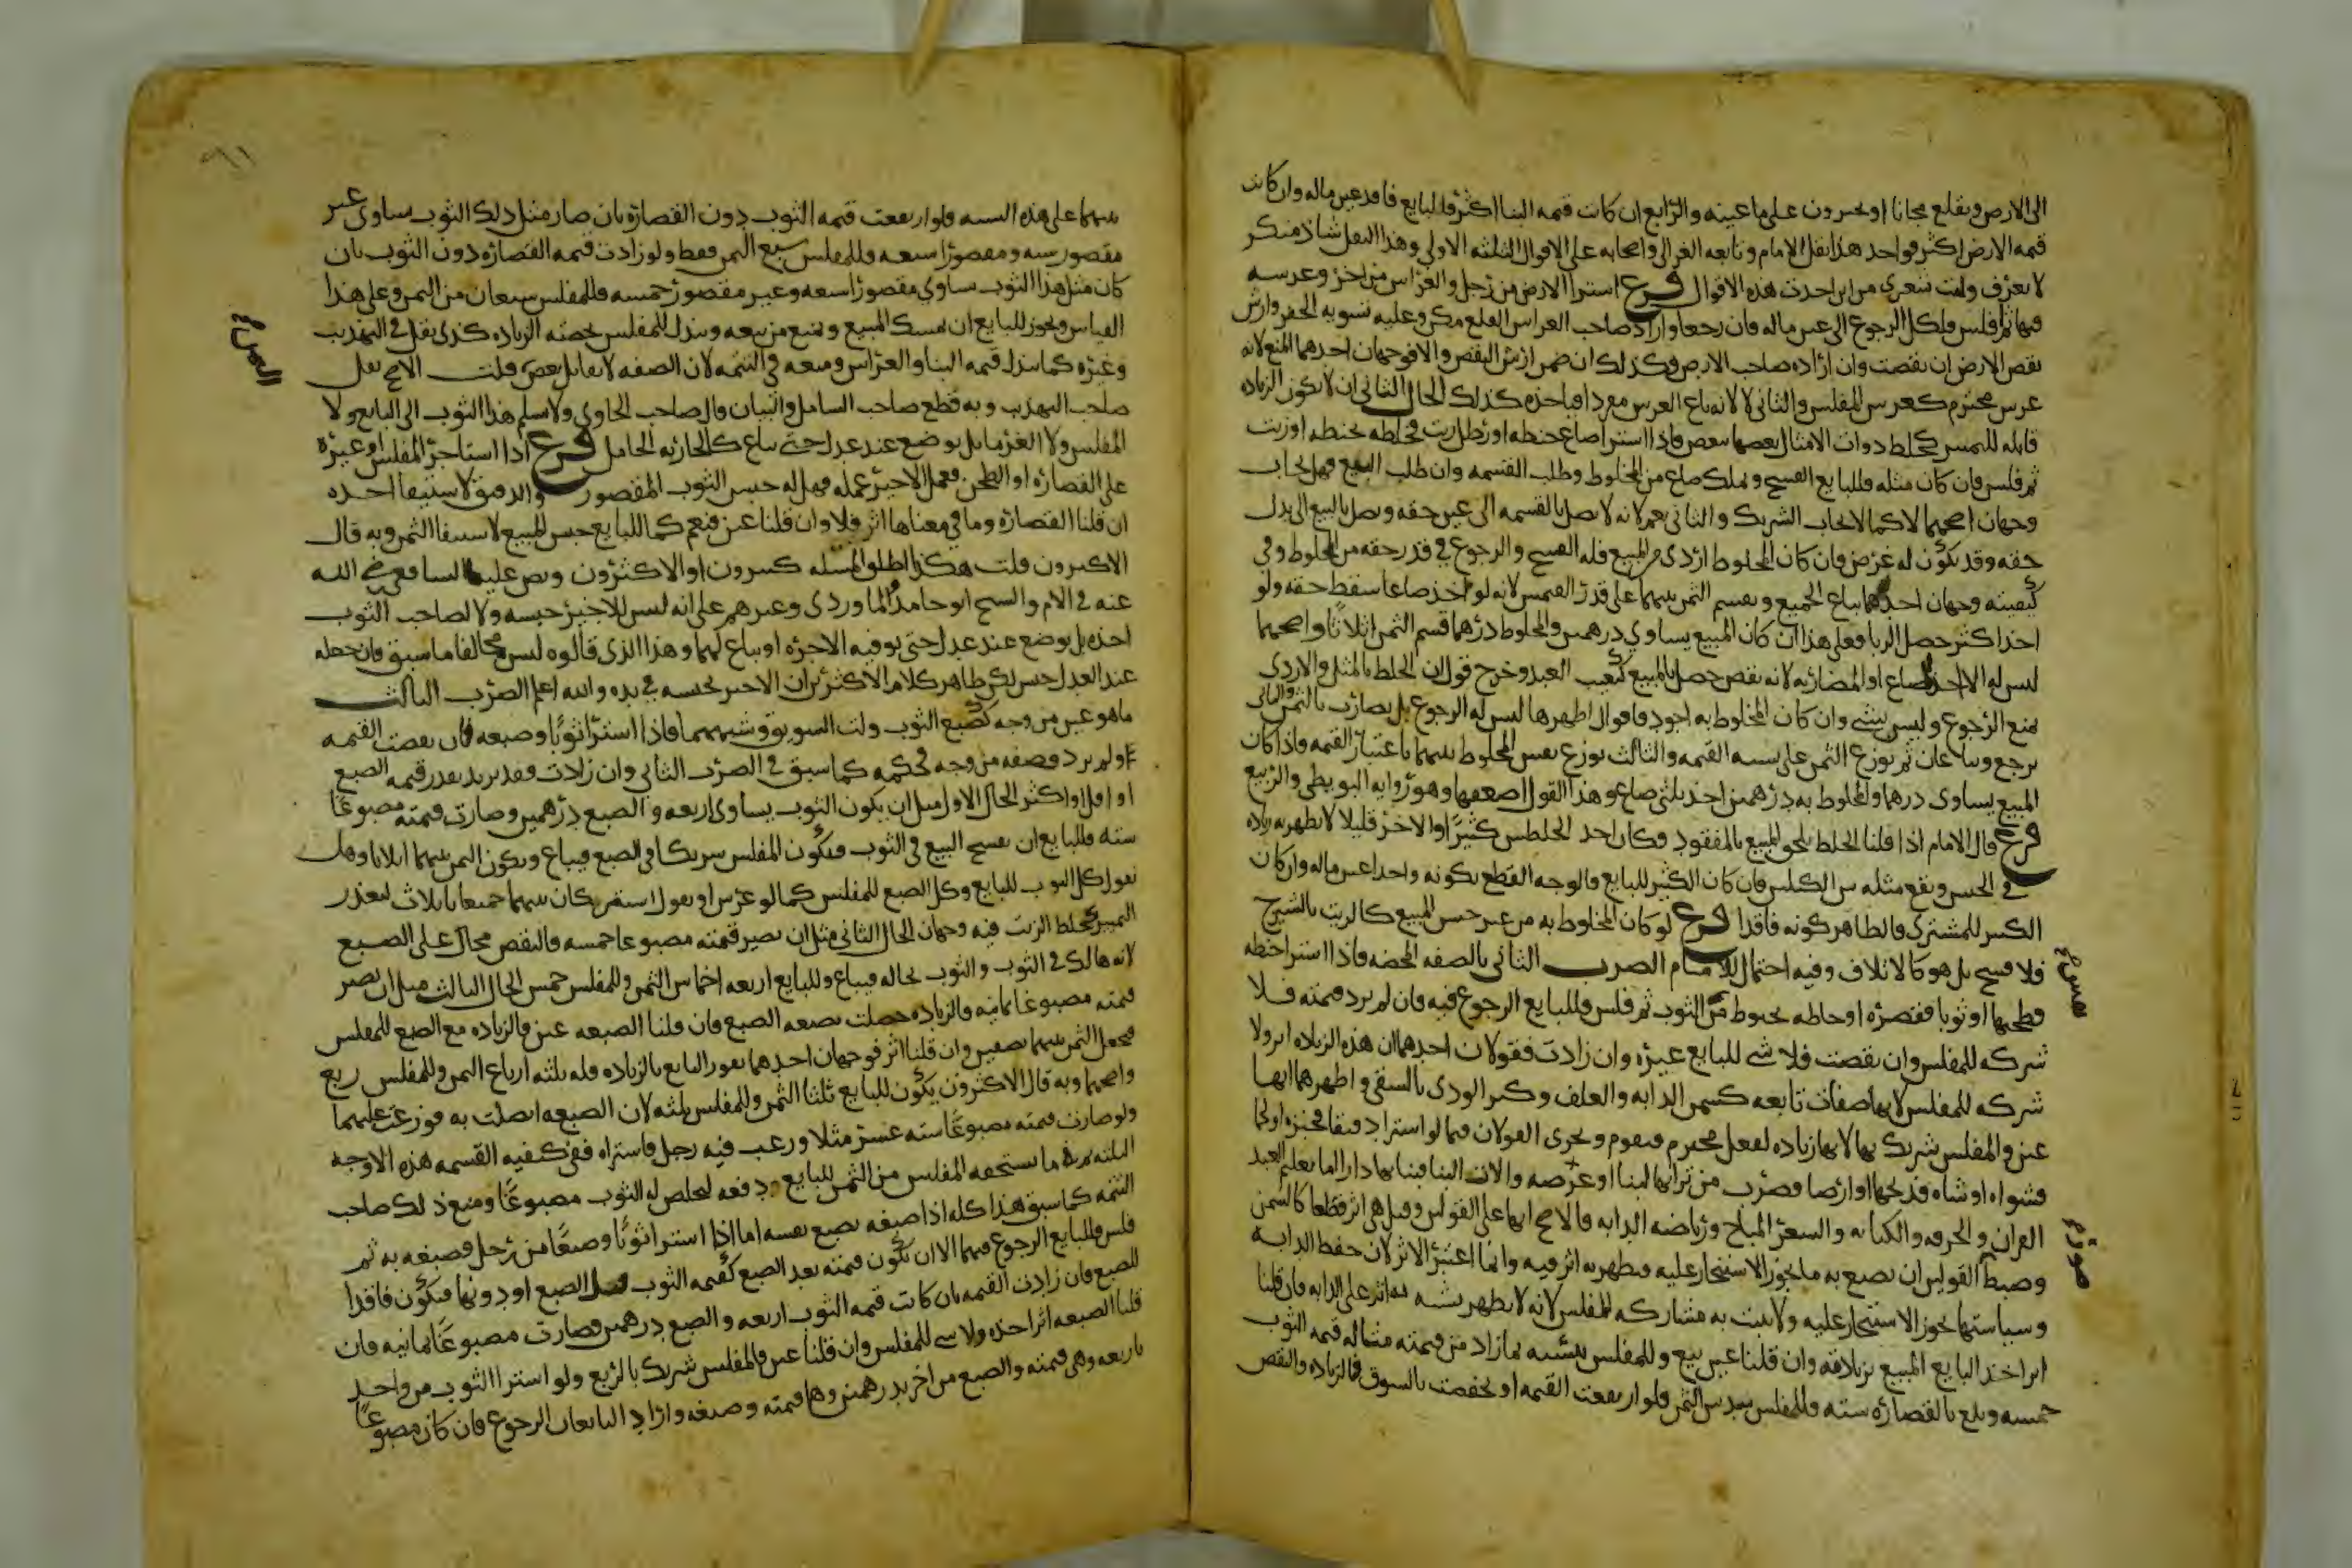 الى الارض ويقلع مجانا او يخيرون على ما عينه والرابع ان كانت قيمه البنا اكثر فللبايع فاقد عين ماله وان كانت
قيمه الارض اكثر فواجد هذا نقل الامام وتابعه الغزالى واصحابه على الاقوال الثلثه الاولى وهذا النقل شاذ منكر
لا يعرف وليت شعرى من اين اخذت هذه الاقوال فرع اشترا الارض من رجل والغراس من اخر وغرسه
فيها ثم افلس فلكل الرجوع الى عين ماله فان رجعا واراد صاحب الغراس القلع مكن وعليه تسويه الحفر وارش
نقص الارض ان نقصت وان اراده صاحب الارض فكذلك ان ضمن ارش النقص والا فوجهان احدهما المنع لانه
غرس محترم كغرس المفلس والثانى لا لانه باع الغرس مفردا فياخذه كذلك الحال الثانى ان لا تكون الزياده
قابله للتميز كخلط ذوات الامثال بعضها ببعض فاذا اشترا صاع حنطه او رطل زيت فخلطه بحنطه او زيت
ثم فلس فان كان مثله فللبايع الفسخ وتملك صاع من المخلوط وطلب القسمه وان طلب البيع فهل يجاب
وجهان اصحهما لا كما لا يجاب الشريك والثانى نعم لانه لا يصل بالقسمه الى عين حقه ويصل بالبيع الى بدل
حقه وقد يكون له غرض فان كان المخلوط اردى من المبيع فله الفسخ والرجوع فى قدر حقه من المخلوط وفى
كيفيته وجهان احدهما يباع الجميع ويقسم الثمن بينهما على قدر القيمتين لانه لو اخذ صاعا سقط حقه ولو
اخذ اكثر حصل الربا فعلى هذا ان كان المبيع يساوى درهمين والمخلوط درهما قسم الثمن اثلاثا واصحهما
ليس له الا اخذ الصاع او المضاربه لانه نقص حصل بالمبيع كتعيب العبد وخرج قول ان الخلط بالمثل والاردى
يمنع الرجوع وليس بشى وان كان المخلوط به اجود فاقوال اظهرها ليس له الرجوع بل يضارب بالثمن والثانى
يرجع ويباعان ثم يوزع الثمن على نسبه القيمه والثالث يوزع نفس المخلوط بينهما باعتبار القيمه فاذا كان
المبيع يساوى درهما والمخلوط به درهمين اخذ ثلثى صاع وهذا القول اضعفها وهو روايه البويطى والربيع
فرع قال الامام اذا قلنا الخلط يلحق المبيع بالمفقود فكان احد الخلطين كثيرا والاخر قليلا لا يظهر به زياده
فى الحس ويقع مثله بين الكيلين فان كان الكثير للبايع فالوجه القطع بكونه واجدا عين ماله وان كان
الكثير للمشترى فالظاهر كونه فاقدا فرع لو كان المخلوط به من غير جنس المبيع كالزيت بالشيرج
فلا فسخ بل هو كالاتلاف وفيه احتمال للامام الضرب الثانى بالصفه المحضه فاذا اشترا حنطه
فطحنها او ثوبا فقصره او خاطه بخيوط من الثوب ثم فلس فللبايع الرجوع فيه فان لم يزد قيمته فلا
شركه للمفلس وان نقصت فلا شى للبايع غيره وان زادت فقولان احدهما ان هذه الزياده اثر ولا
شركه للمفلس لانها صفات تابعه كسمن الدابه والعلف وكبر الودى بالسقى واظهرهما انها
عين والمفلس شريك بها لانها زياده لفعل محترم متقوم ويجرى القولان فيما لو اشترا دقيقا فخبزه او لحما
فشواه او شاه فذبحها او ارضا وضرب من ترابها لبنا او عرصه والات البنا فبنا بها دارا اما تعليم العبد
القران والحرفه والكتابه والشعر المباح ورياضه الدابه فالاصح انها على القولين وقيل هى اثر قطعا كالسمن
وضبط القولين ان يصنع به ما يجوز الاستئجار عليه فيظهر به اثر فيه وانما اعتبر الاثر لان حفظ الدابه
وسياستها يجوز الاستئجار عليه ولا يثبت به مشاركه للمفلس لانه لا يظهر بسببه اثر على الدابه فان قلنا
اثر اخذ البايع المبيع بزيادته وان قلنا عين بيع وللمفلس بنسبه ما زاد من قيمته مثاله قيمه الثوب
خمسه وبلغ بالقصاره سته فللمفلس سدس الثمن فلو ارتفعت القيمه او نخفضت بالسوق فالزياده والنقص
بينهما على هذه النسبه فلو ارتفعت قيمه الثوب دون القصاره بان صار مثل ذلك الثوب يساوى غير
مقصور سته ومقصورا سبعه فللمفلس سبع الثمن فقط ولو زادت قيمه القصاره دون الثوب بان
كان مثل هذا الثوب يساوى مقصورا سبعه وغير مقصور خمسه فللمفلس سبعان من الثمن وعلى هذا
القياس ويجوز للبايع ان يمسك المبيع ويمنع من بيعه ويبذل للمفلس حصته الزياده كذى نقل فى التهذيب
وغيره كما يبذل قيمه البنا والغراس ومنعه فى التتمه لان الصفه لا تقابل بعوض قلت الاصح نقل
صاحب التهذيب وبه قطع صاحب الشامل والبيان قال صاحب الحاوى ولا يسلم هذا الثوب الى البايع ولا
المفلس ولا الغرما بل يوضع عند عدل حتى يباع كالجاريه الحامل فرع اذا استاجر المفلس او غيره
على القصاره او الطحن فعمل الاجير عمله فهل له حبس الثوب المقصور والدقيق لاستيفا اجره
ان قلنا القصاره وما فى معناها اثر فلا وان قلنا عين فنعم كما للبايع حبس المبيع لاستيفا الثمن وبه قال
الاكثرون قلت هكذا اطلق المسله كثيرون او الاكثرون ونص عليها الشافعى رضى الله
عنه فى الام والشيخ ابو حامد والماوردى وغيرهم على انه ليس للاجير حبسه ولا لصاحب الثوب
اخذه بل يوضع عند عدل حتى يوفيه الاجره او يباع لهما وهذا الذى قالوه ليس مخالفا ما سبق فان جعله
عند العدل حبس لكن ظاهر كلام الاكثرين ان الاجير يحبسه فى يده والله اعلم الضرب الثالث
ما هو عين من وجه كصبغ الثوب ولت السويق وشبههما فاذا اشترا ثوبا وصبغه فان نقصت القيمه
او لم يزد وصفه من وجه فحكمه كما سبق فى الضرب الثانى وان زادت فقد يزيد بقدر قيمه الصبغ
او اقل او اكثر الحال الاول مثل ان يكون الثوب يساوى اربعه والصبغ درهمين وصارت قيمته مصبوغا
سته فللبايع ان يفسخ البيع فى الثوب فيكون المفلس شريكا فى الصبغ فيباع ويكون الثمن بينهما اثلاثا وهل
نقول كل الثوب للبايع وكل الصبغ للمفلس كما لو غرس او نقول يشتركان بينهما جميعا بالاثلاث لتعذر
التمييز كخلط الزيت فيه وجهان الحال الثانى مثل ان تصير قيمته مصبوغا خمسه فالنقص محال على الصبغ
لانه هالك فى الثوب والثوب بحاله فيباع وللبايع اربعه اخماس الثمن وللمفلس خمس الحال الثالث مثل ان تصير
قيمته مصبوغا ثمانيه فالزياده حصلت بصنعه الصبغ فان قلنا الصبغه عين فالزياده مع الصبغ للمفلس
فيجعل الثمن بينهما نصفين وان قلنا اثر فوجهان احدهما يفوز البايع بالزياده فله ثلثه ارباع الثمن وللمفلس ربع
واصحهما وبه قال الاكثرون يكون للبايع ثلثا الثمن وللمفلس ثلثه لان الصبغه اتصلت به فوزعت عليهما
ولو صارت قيمته مصبوغا سته عشر مثلا ورغب فيه رجل فاشتراه ففى كيفيه القسمه هذه الاوجه
الثلثه ما يستحقه المفلس من الثمن للبايع دفعه ليخلص له الثوب مصبوغا ومنع ذلك صاحب
التتمه كما سبق هذا كله اذا صبغه بصبغ نفسه اما اذا اشترا ثوبا وصبغا من رجل وصبغه به ثم
فلس فللبايع الرجوع فيهما الا ان تكون قيمته بعد الصبغ كقيمه الثوب قبل الصبغ او دونها فيكون فاقدا
للصبغ فان زادت القيمه بان كانت قيمه الثوب اربعه والصبغ درهمين فصارت مصبوغا ثمانيه فان
قلنا الصبغه اثر اخذه ولا شى للمفلس وان قلنا عين فالمفلس شريك بالربع ولو اشترا الثوب من واحد
باربعه وهى قيمته والصبغ من اخر بدرهمين وهما قيمته وصبغه واراد البايعان الرجوع فان كان مصبوغا